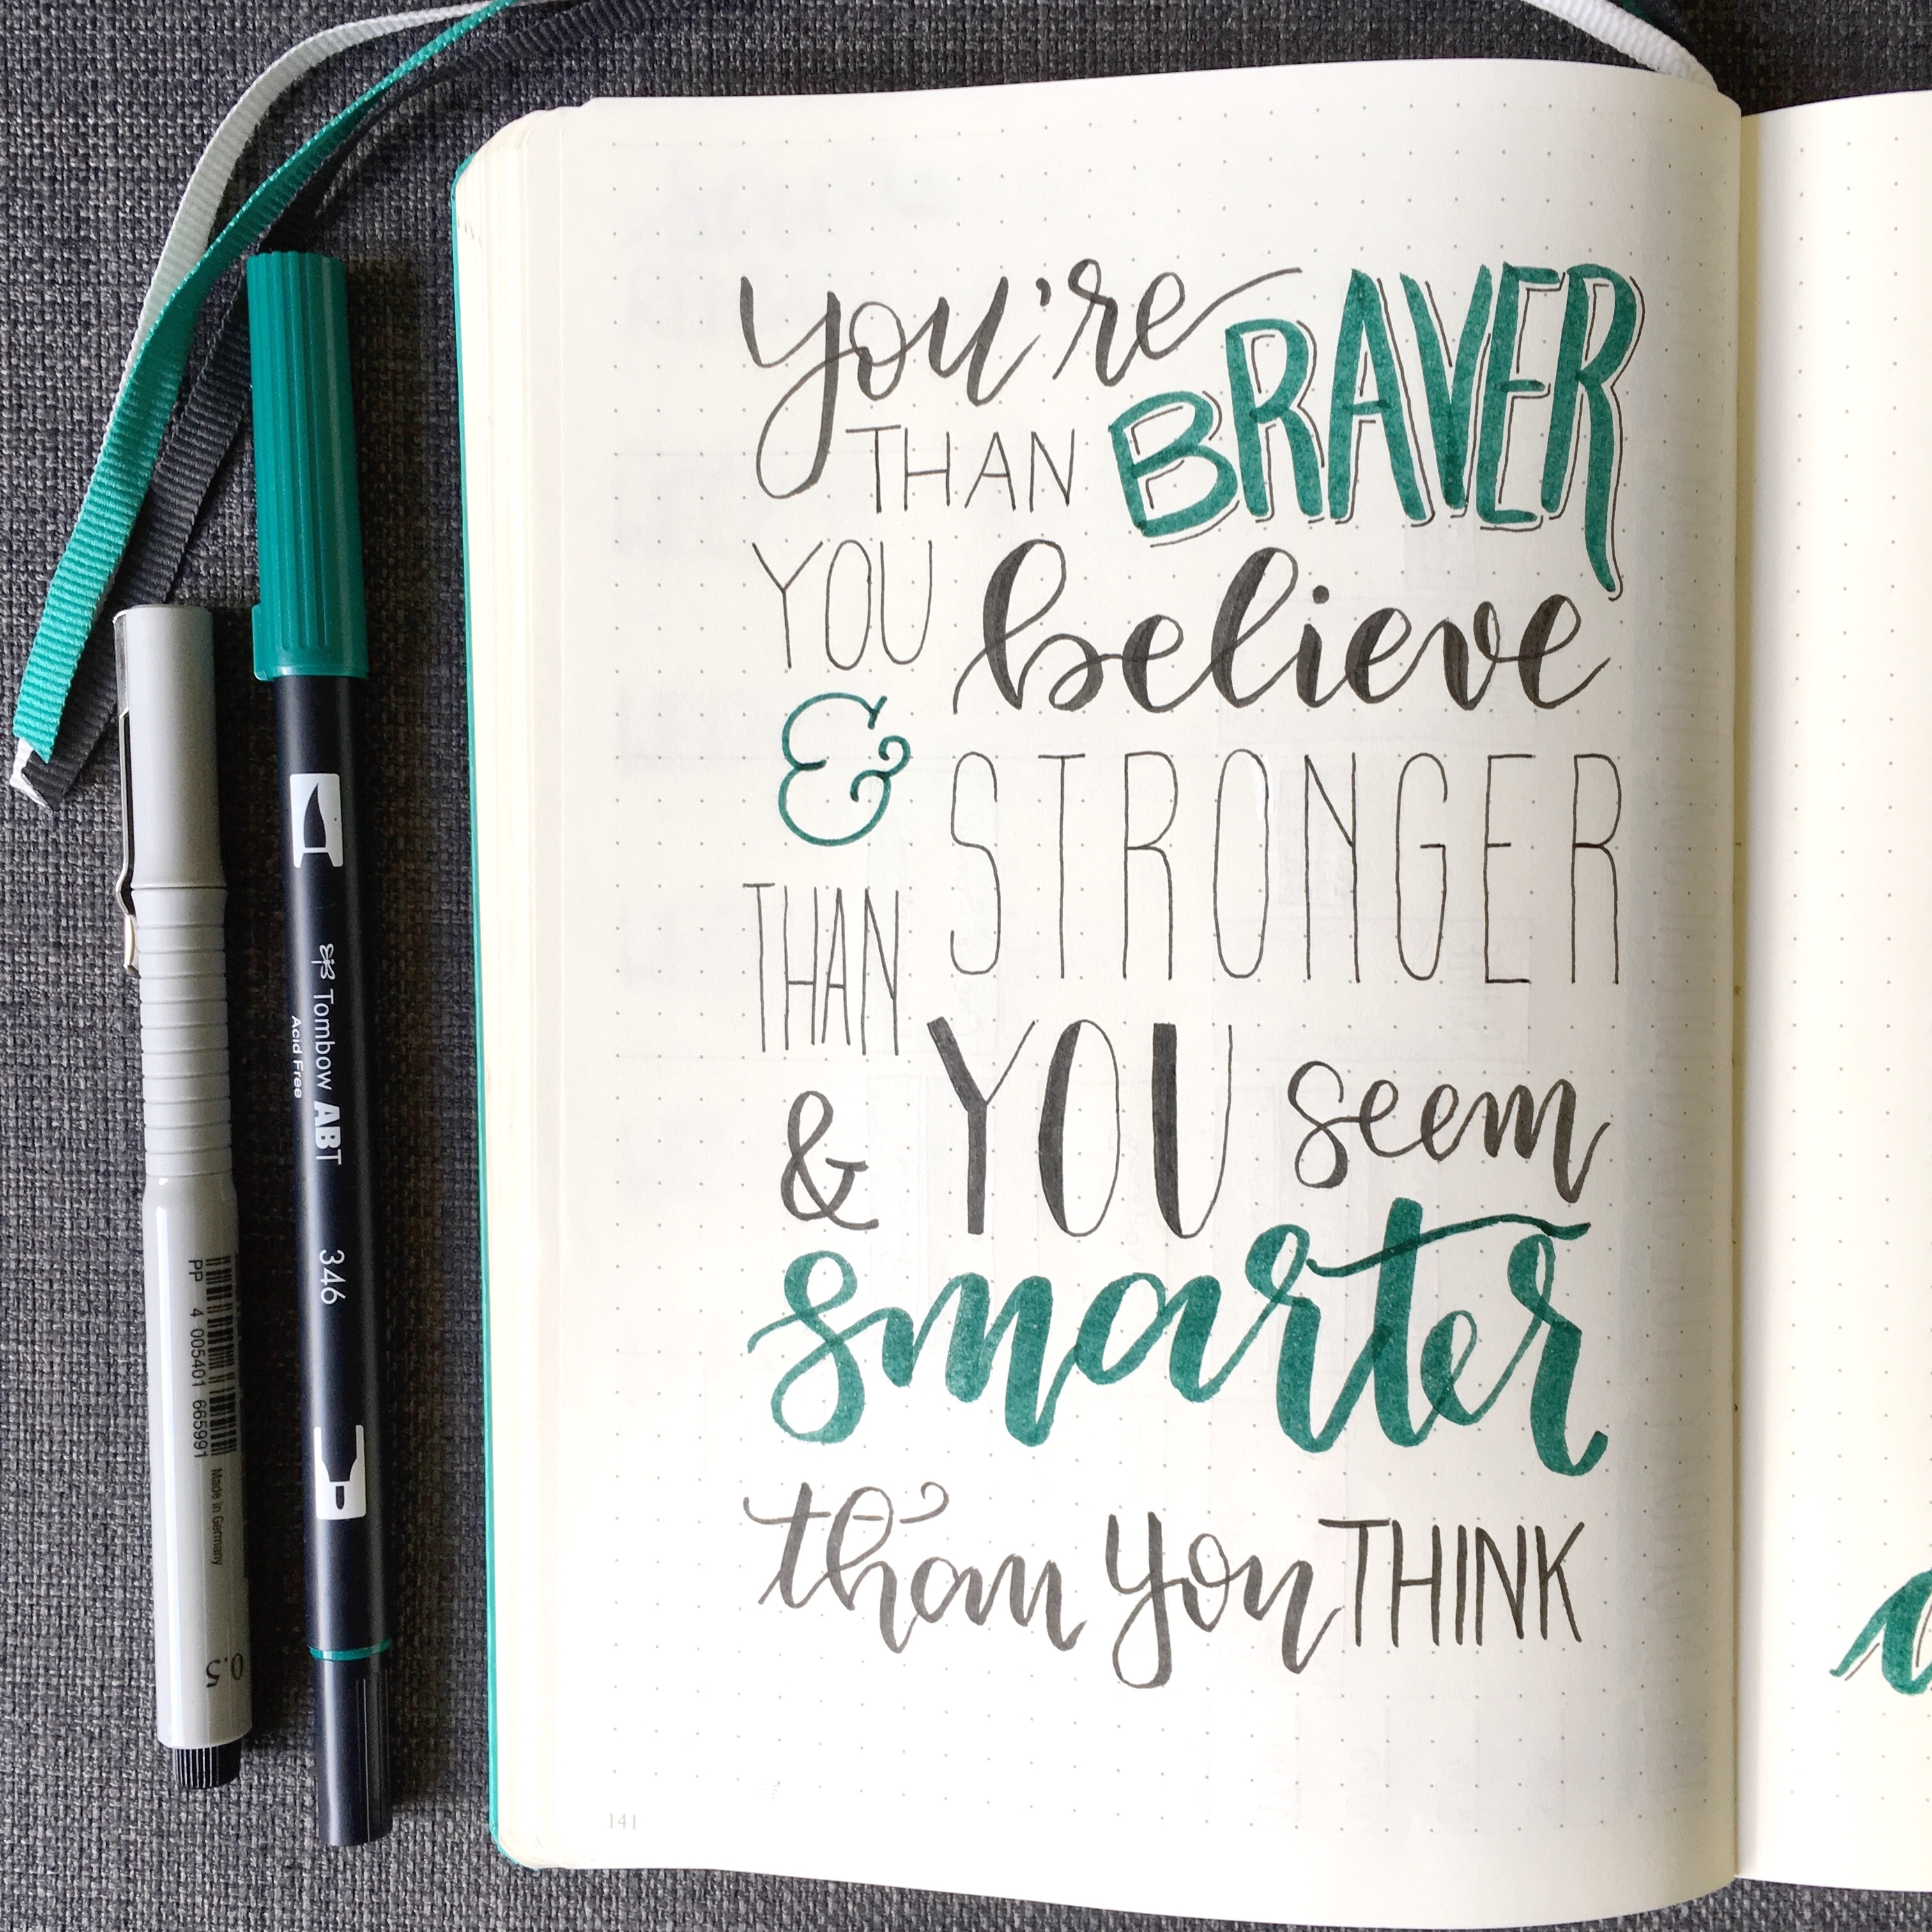 you're BRAVER
THAN
YOU believe
& STRONGER
THAN
YOU seem
&
smarter
than you THINK
141
Tombow ABT 346
Acid Free
PP 4 005401 665991 Made in Germany
0.5